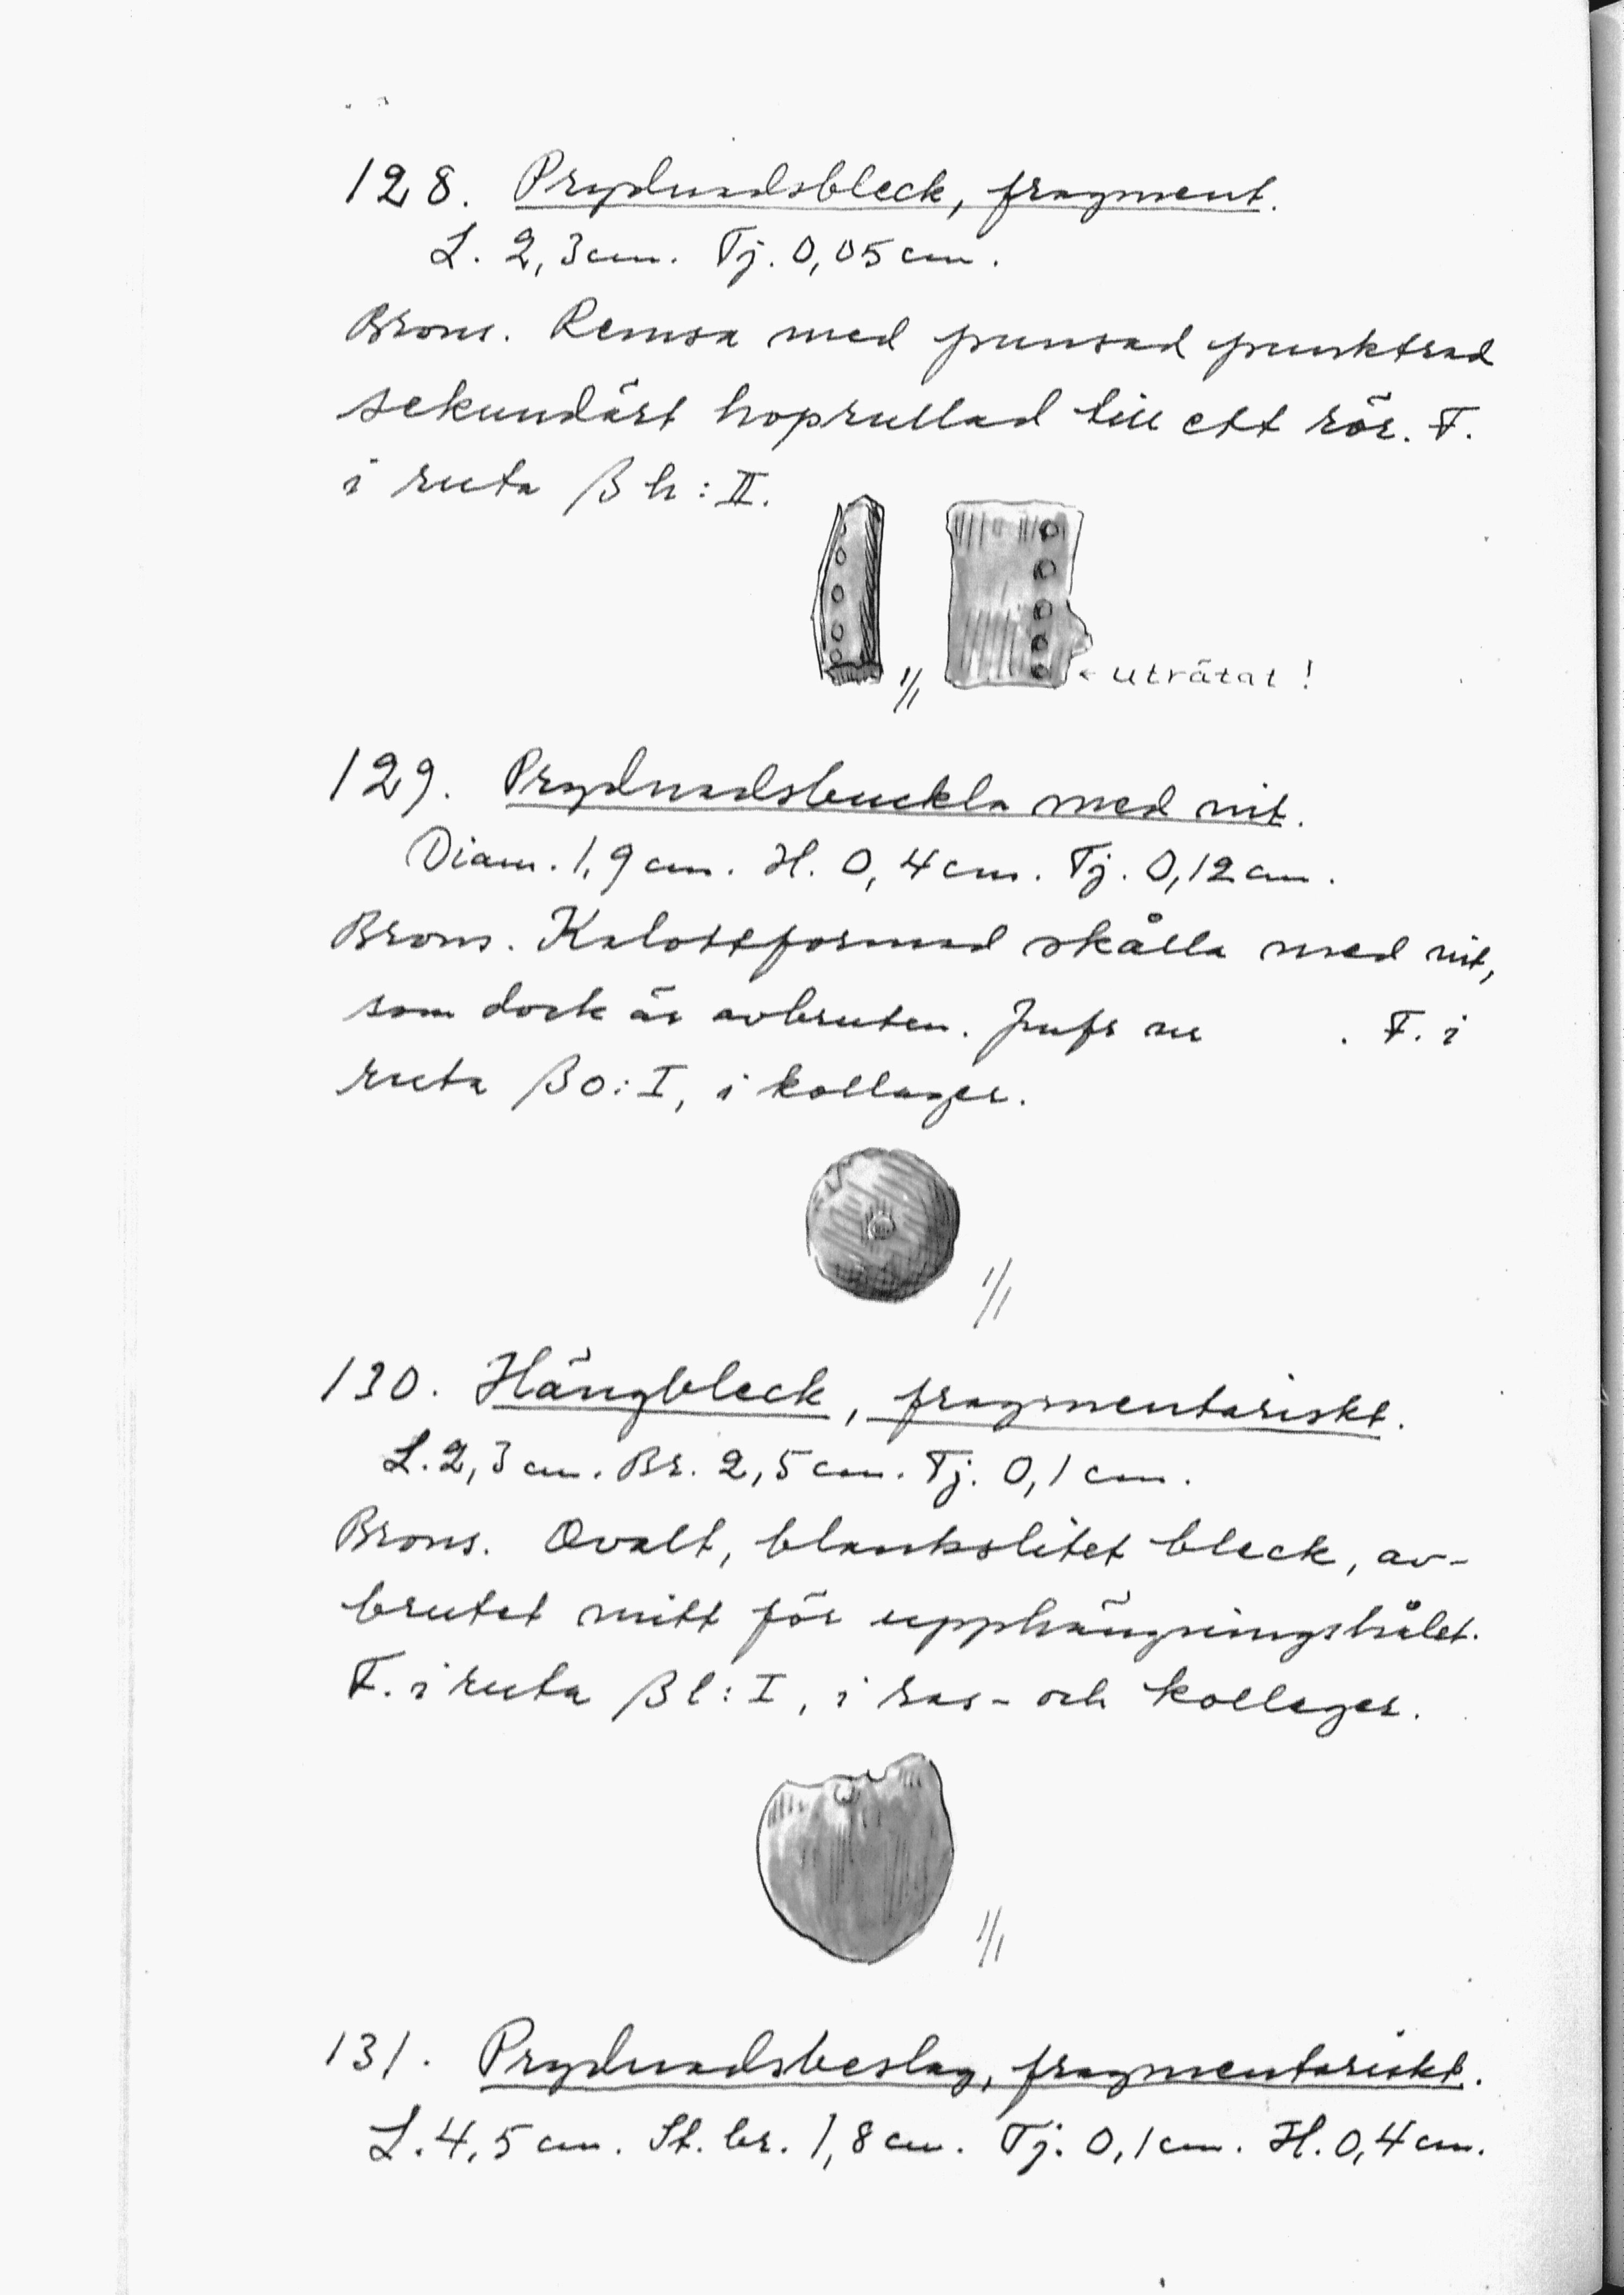 128. Prydnadsbleck, fragment.
L. 2,3 cm. Tj. 0,05 cm.
Brons. Remsa med punsad punktrad
sekundärt hoprullad till ett rör. F.
i ruta βh:II.
1/1 ← uträtat!
129. Prydnadsbuckla med nit.
Diam. 1,9 cm. H. 0,4 cm. Tj. 0,12 cm.
Brons. Kalottformad skålla med nit,
som dock är avbruten. Jmfr nr . F. i
ruta βo:I, i kollager.
1/1
130. Hängbleck, fragmentariskt.
L. 2,3 cm. Br. 2,5 cm. Tj. 0,1 cm.
Brons. Ovalt, blankslitet bleck, av-
brutet mitt för upphängningshålet.
F. i ruta βl:I, i ras- och kollager.
1/1
131. Prydnadsbeslag, fragmentariskt.
L. 4,5 cm. St. br. 1,8 cm. Tj. 0,1 cm. H. 0,4 cm.